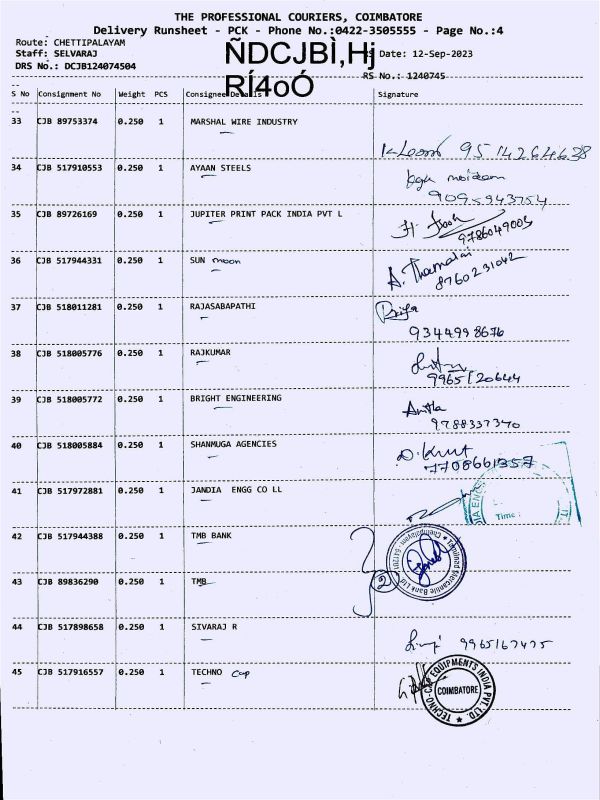 THE PROFESSIONAL COURIERS, COIMBATORE
Delivery Runsheet - PCK - Phone No.:0422-3505555 - Page No.:4
Route: CHETTIPALAYAM
Staff: SELVARAJ
ÑDCJBÌ,Hj
RS Date: 12-Sep-2023
DRS No.: DCJB124074504
RÍ4oÓ
RS No.: 1240745
S No Consignment No Weight PCS Consignee Details Signature
33 CJB 89753374 0.250 1 MARSHAL WIRE INDUSTRY
9514264638
34 CJB 517910553 0.250 1 AYAAN STEELS
9095943754
35 CJB 89726169 0.250 1 JUPITER PRINT PACK INDIA PVT L
9786049003
36 CJB 517944331 0.250 1 SUN moon
8760231042
37 CJB 518011281 0.250 1 RAJASABAPATHI
9344998676
38 CJB 518005776 0.250 1 RAJKUMAR
9965120644
39 CJB 518005772 0.250 1 BRIGHT ENGINEERING
9788337340
40 CJB 518005884 0.250 1 SHANMUGA AGENCIES
7708661357
41 CJB 517972881 0.250 1 JANDIA ENGG CO LL
Time :
42 CJB 517944388 0.250 1 TMB BANK
Tamilnad Mercantile Bank Ltd.
43 CJB 89836290 0.250 1 TMB
2
44 CJB 517898658 0.250 1 SIVARAJ R
9965167475
45 CJB 517916557 0.250 1 TECHNO Cap
TECHNO-CAP EQUIPMENTS INDIA PVT. LTD.
COIMBATORE